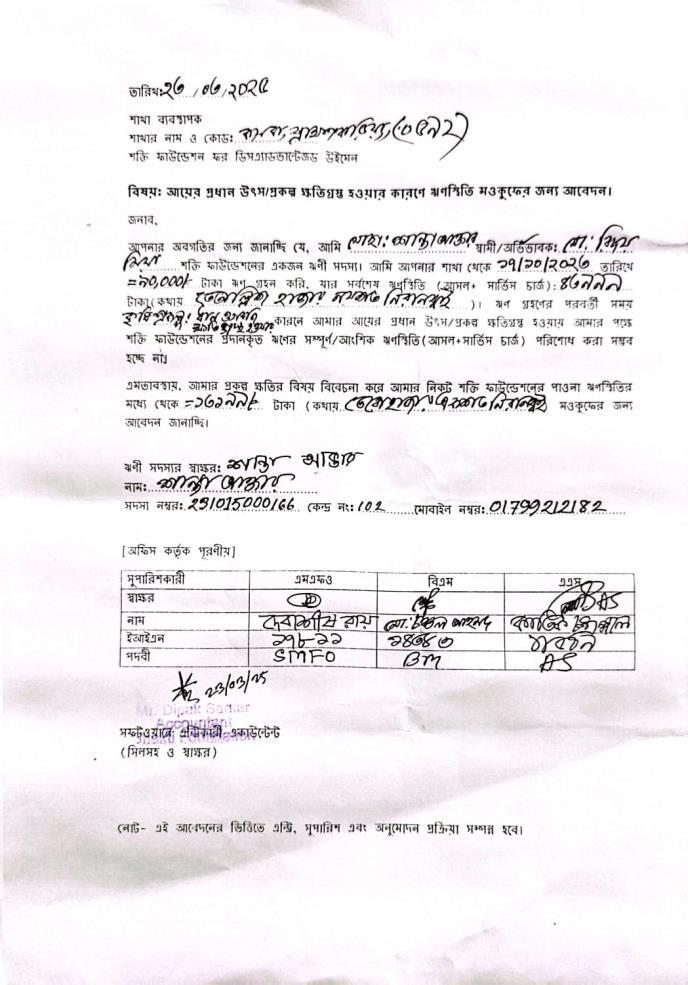 তারিখঃ ২৩/০৩/২০২৫
শাখা ব্যবস্থাপক
শাখার নাম ও কোডঃ কসবা, ব্রাহ্মণবাড়িয়া, (০৫৭২)
শক্তি ফাউন্ডেশন ফর ডিসএ্যাডভান্টেজড উইমেন
বিষয়: আয়ের প্রধান উৎস/প্রকল্প ক্ষতিগ্রস্থ হওয়ার কারণে ঋণস্থিতি মওকুফের জন্য আবেদন।
জনাব,
আপনার অবগতির জন্য জানাচ্ছি যে, আমি মোছা: শান্তা আক্তার স্বামী/অভিভাবক: মো:
মিয়া শক্তি ফাউন্ডেশনের একজন ঋণী সদস্য। আমি আপনার শাখা থেকে তারিখে
=৯০,০০০/- টাকা ঋণ গ্রহন করি, যার সর্বশেষ ঋণস্থিতি (আসল+ সার্ভিস চার্জ):
টাকা(কথায় হাজার নয়শত নিরানব্বই )। ঋণ গ্রহণের পরবর্তী সময়
কারনে আমার আয়ের প্রধান উৎস/প্রকল্প ক্ষতিগ্রস্থ হওয়ায় আমার পক্ষে
শক্তি ফাউন্ডেশনের প্রদানকৃত ঋণের সম্পূর্ণ/আংশিক ঋণস্থিতি(আসল+সার্ভিস চার্জ) পরিশোধ করা সম্ভব
হচ্ছে না।
এমতাবস্থায়, আমার প্রকল্প ক্ষতির বিষয় বিবেচনা করে আমার নিকট শক্তি ফাউন্ডেশনের পাওনা ঋণস্থিতির
মধ্যে থেকে টাকা (কথায় একশত নিরানব্বই) মওকুফের জন্য
আবেদন জানাচ্ছি।
ঋণী সদস্যর স্বাক্ষর: শান্তা আক্তার
নাম: শান্তা আক্তার
সদস্য নম্বর: 251015000166 কেন্দ্র নং: 102 মোবাইল নম্বর: 01799212182
[অফিস কর্তৃক পূরণীয়]
সুপারিশকারী এমএফও বিএম এএস
স্বাক্ষর AS
নাম দেবাশীষ রায় মো: আহমদ
ইআইএন
পদবী SMFO BM AS
23/03/25
Mr. Dipak Sarkar
Accountant
সফটওয়ারে এন্ট্রিকারী একাউন্টেন্ট
(সিলসহ ও স্বাক্ষর)
নোট- এই আবেদনের ভিত্তিতে এন্ট্রি, সুপারিশ এবং অনুমোদন প্রক্রিয়া সম্পন্ন হবে।